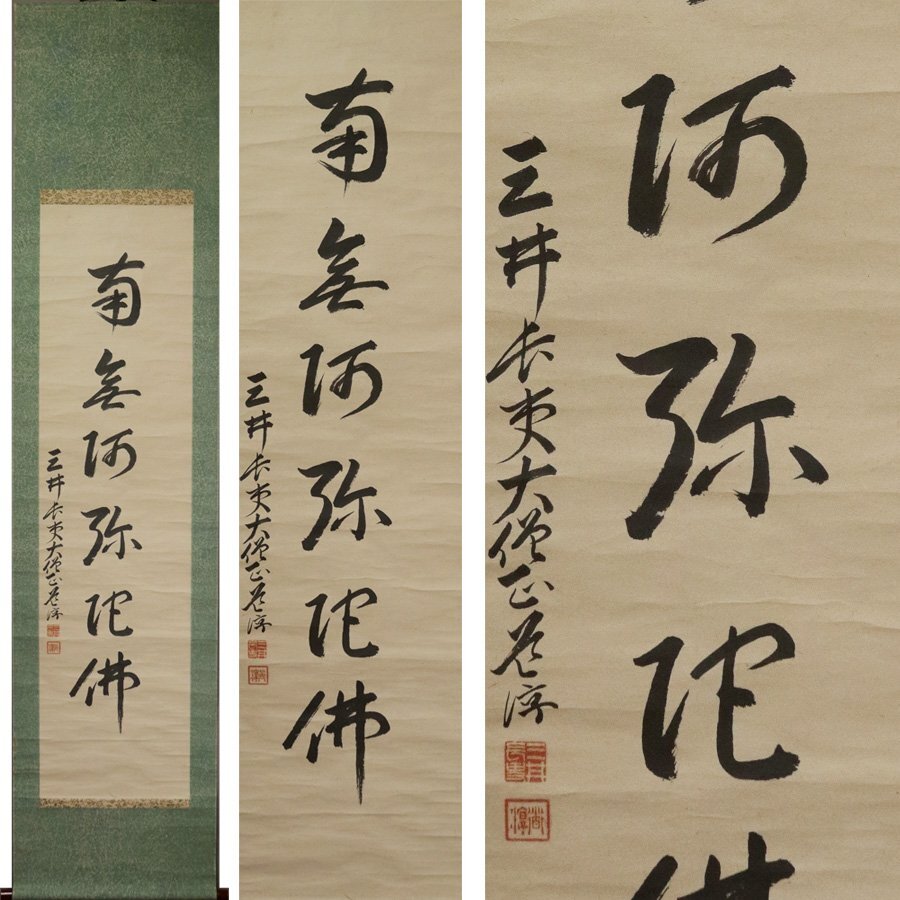 南無阿弥陀佛
三井長吏大僧正
南無阿弥陀佛
三井長吏大僧正
阿弥陀佛
三井長吏大僧正